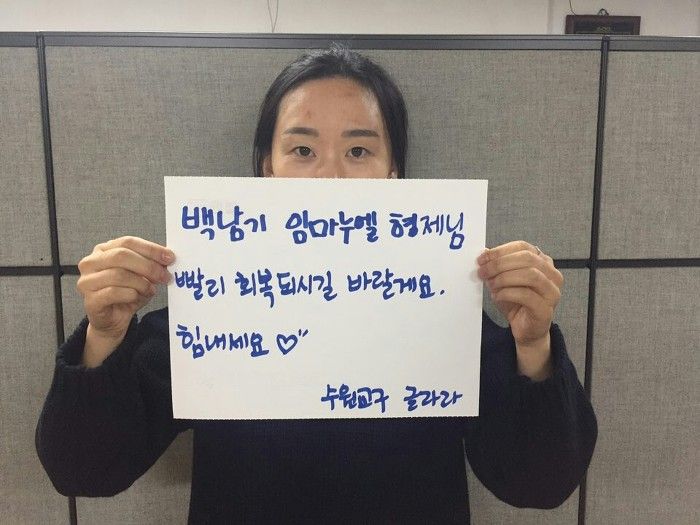 백남기 임마누엘 형제님
빨리 회복되시길 바랄게요.
힘내세요 ♡"
수원교구 글라라